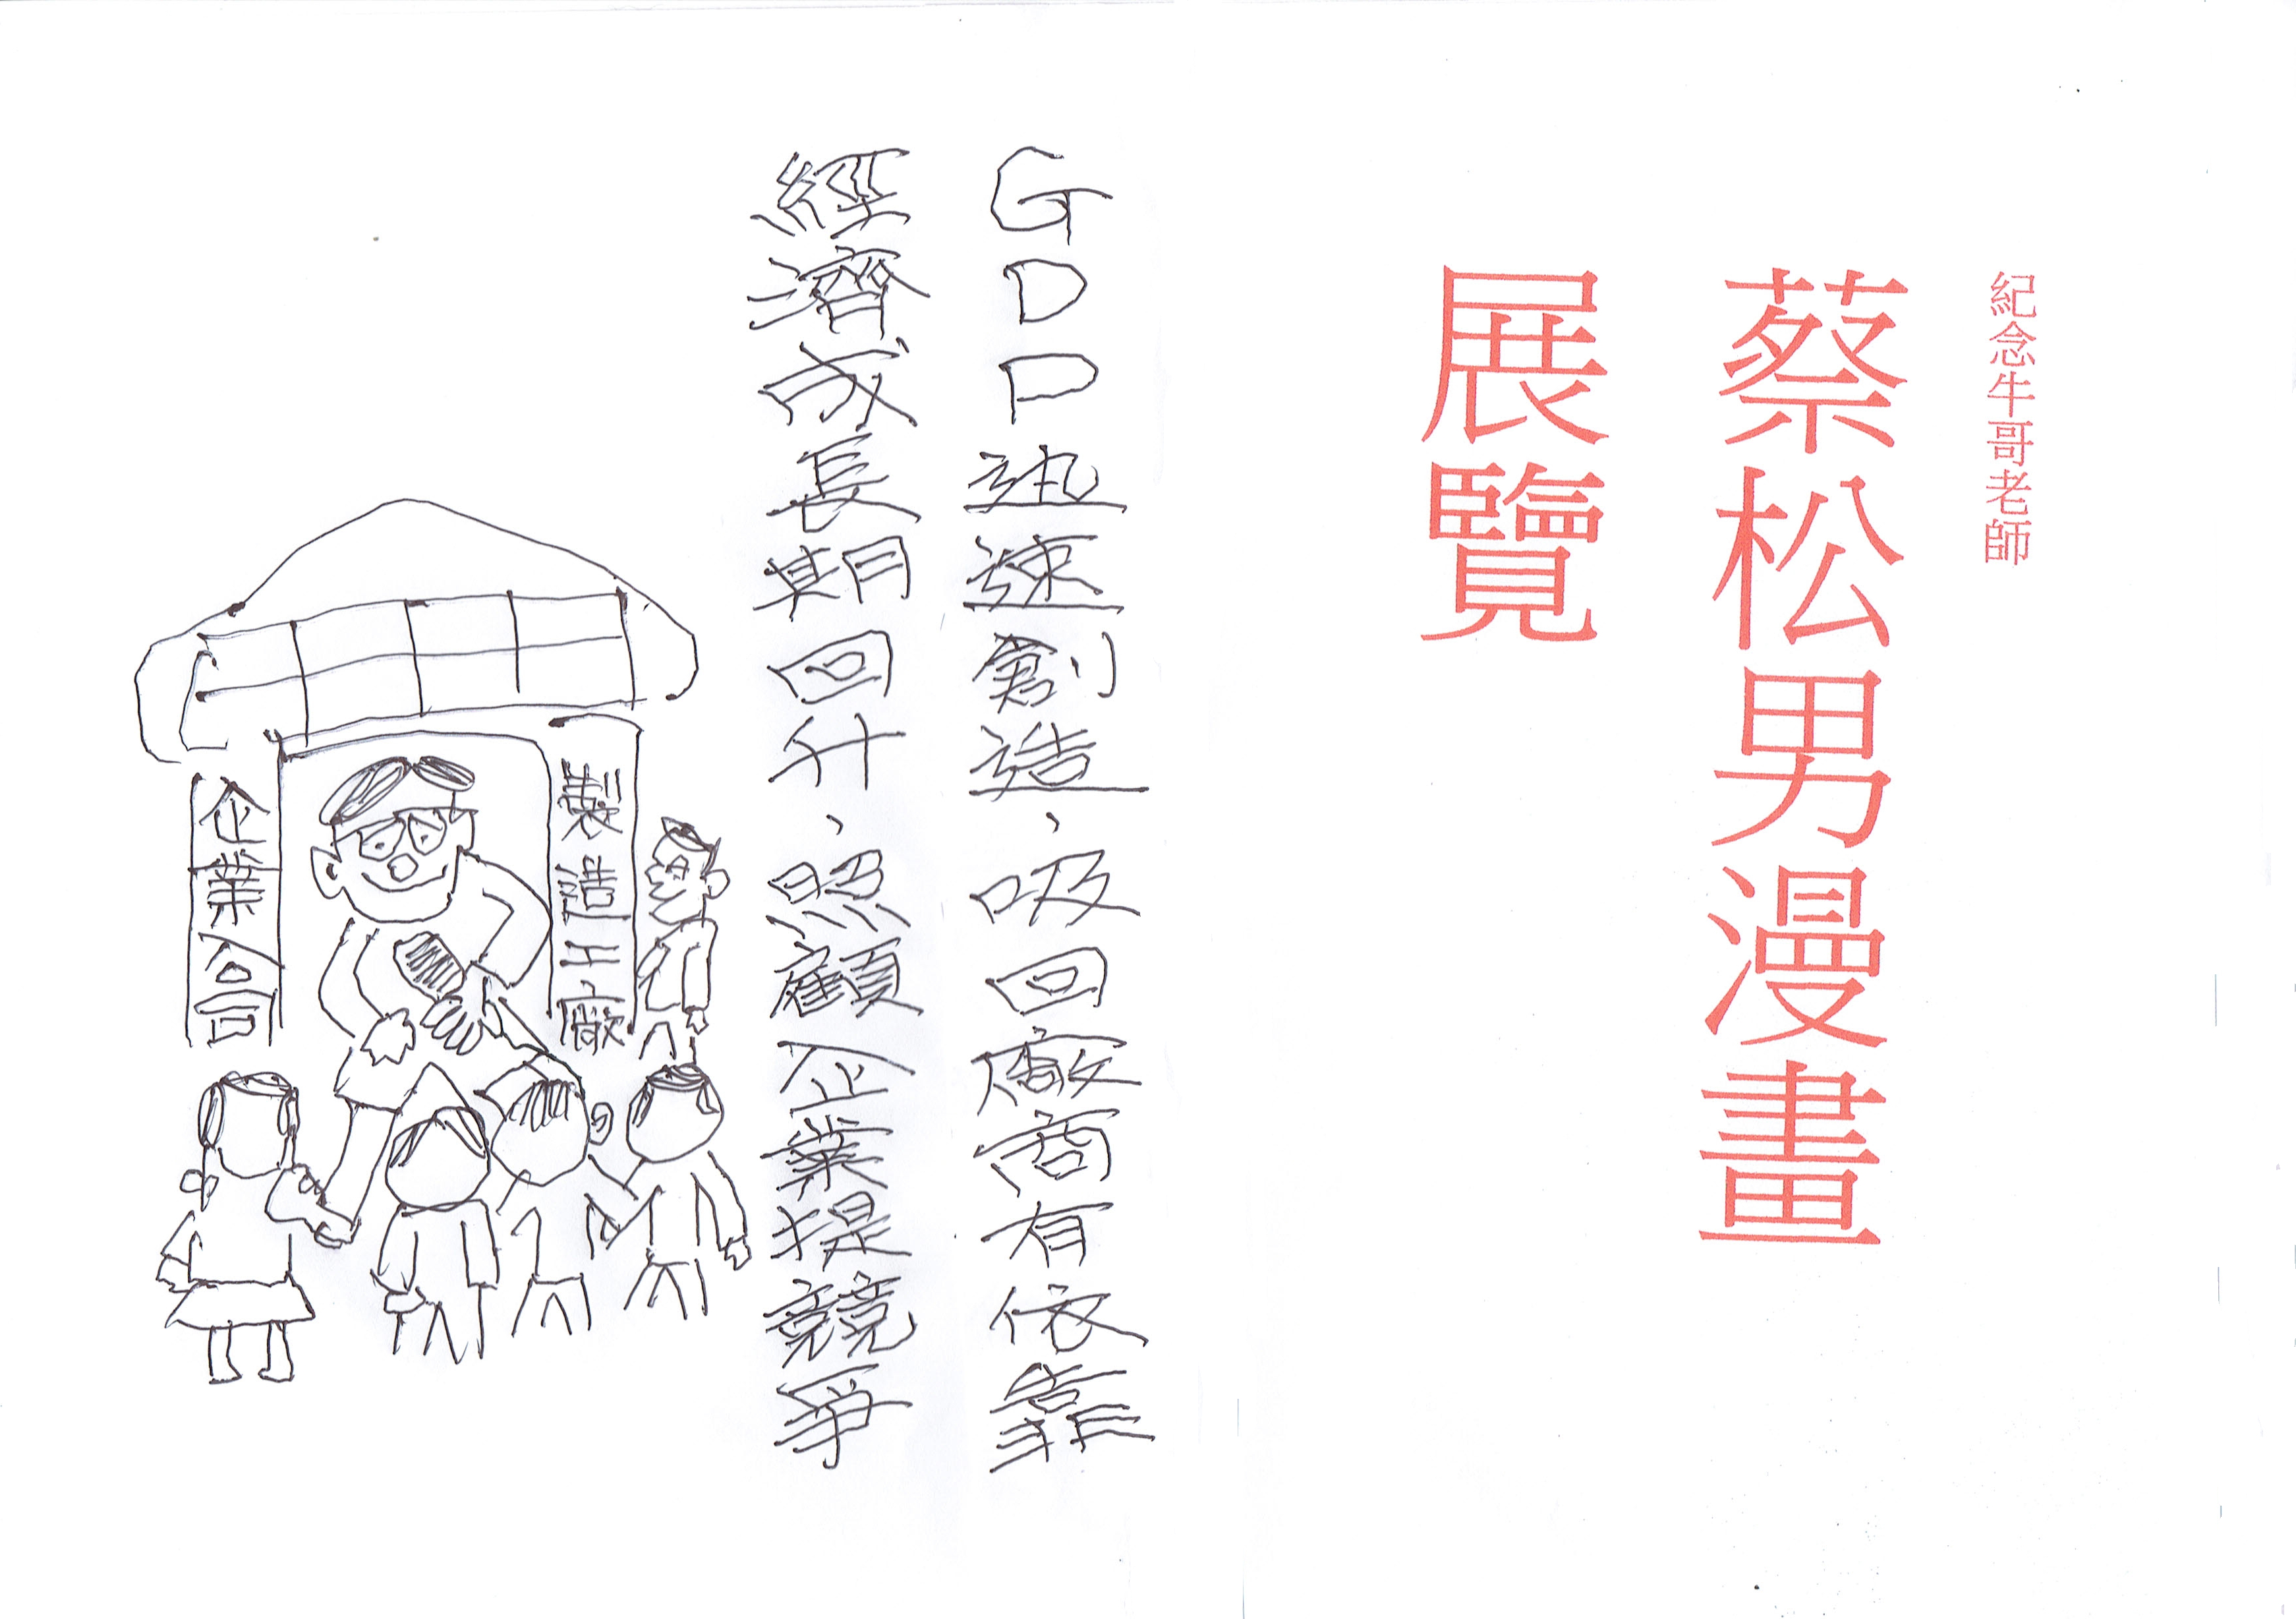 紀念牛哥老師
蔡松男漫畫
展覽
GDP迅速創造、吸回廠商有依靠
經濟成長期回升、照顧企業提競爭
製造工廠
企業公司